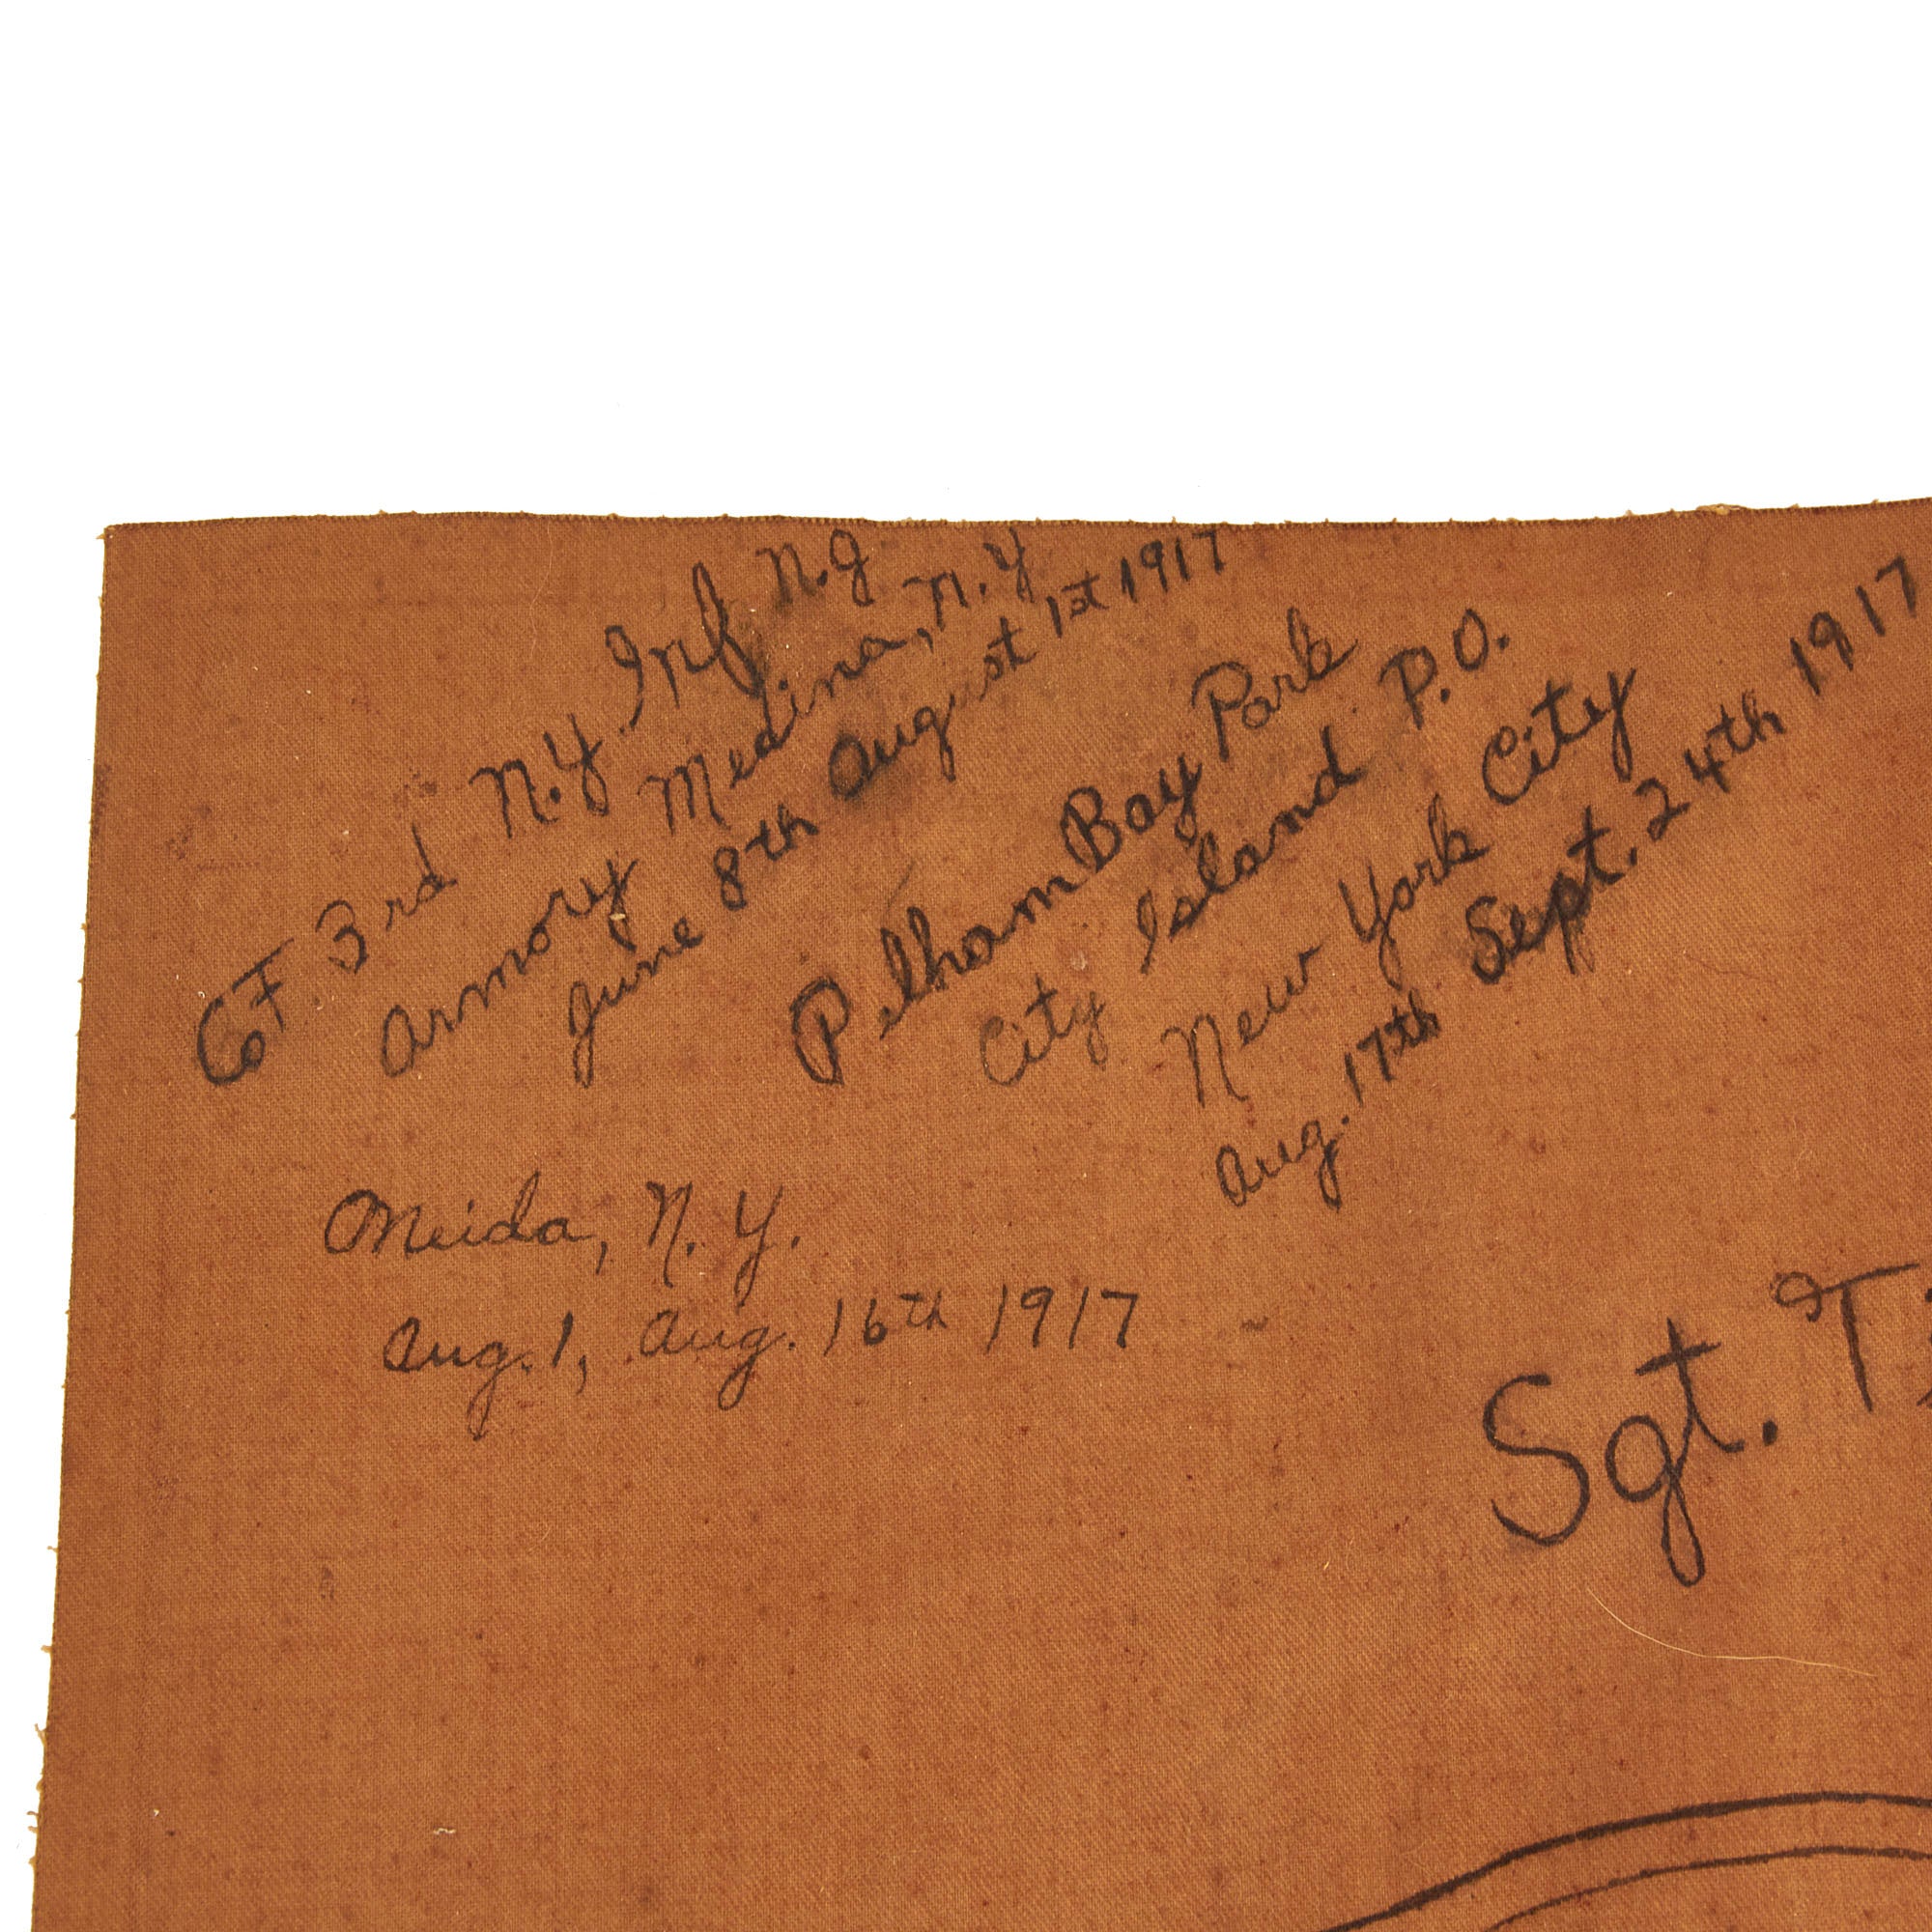 Co F 3rd N.Y. Inf N.G
Armory Medina, N.Y
June 8th August 1st 1917
Pelham Bay Park
City Island P.O.
New York City
Aug. 17th Sept. 24th 1917
Oneida, N.Y.
Aug. 1, Aug. 16th 1917
Sgt.